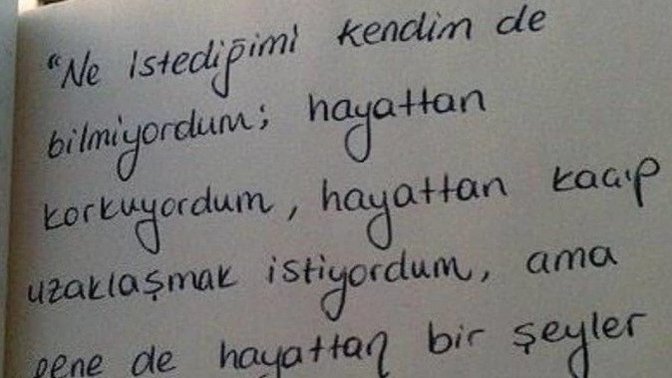 "Ne istediğimi kendim de
bilmiyordum; hayattan
korkuyordum, hayattan kaçıp
uzaklaşmak istiyordum, ama
gene de hayattan bir şeyler